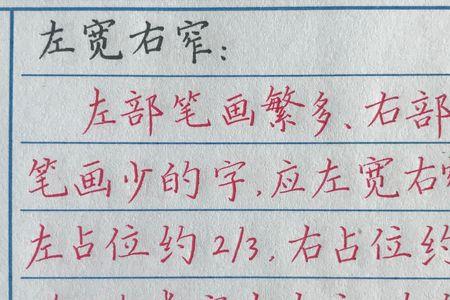 左宽右窄:
左部笔画繁多、右部
笔画少的字,应左宽右
左占位约2/3,右占位约